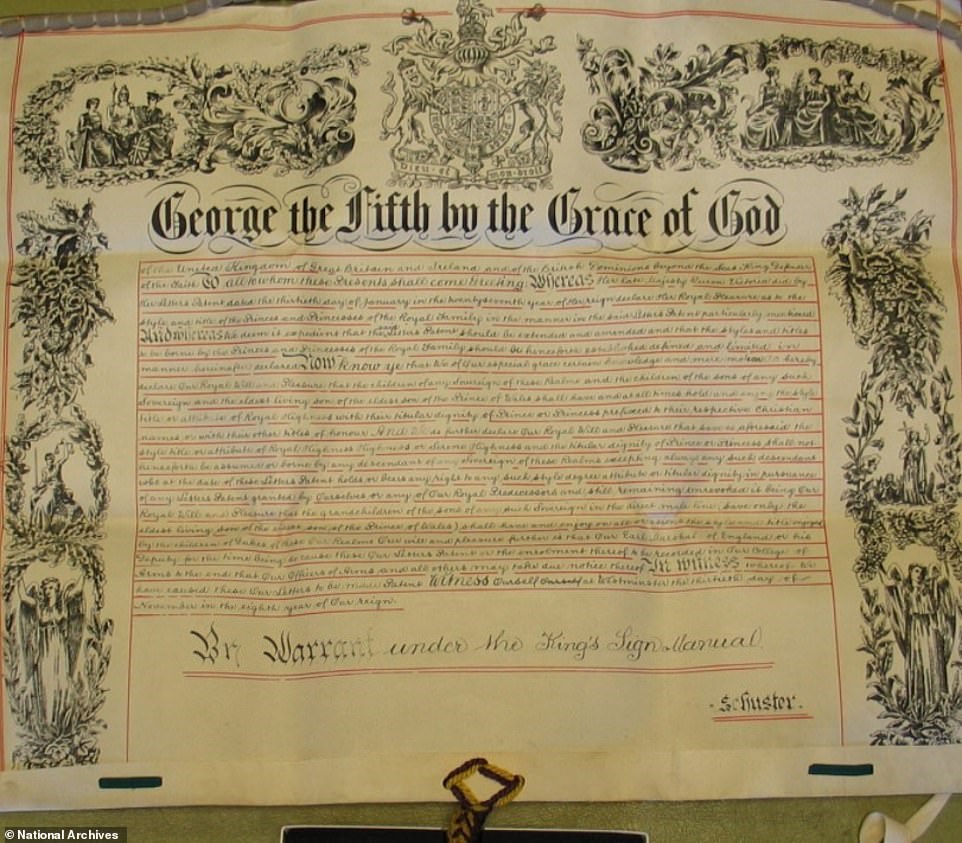 Dieu et mon droit
George the Fifth by the Grace of God
of the United Kingdom of Great Britain and Ireland and of the British Dominions beyond the Seas King Defender
of the Faith To all to whom these Presents shall come Greeting Whereas Her late Majesty Queen Victoria did by
Her Letters Patent dated the thirtieth day of January in the twentyseventh year of Her reign declare Her Royal Pleasure as to the
style and title of the Princes and Princesses of the Royal Family in the manner in the said Letters Patent particularly mentioned
And whereas We deem it expedient that the said Letters Patent should be extended and amended and that the styles and titles
to be borne by the Princes and Princesses of the Royal Family should be henceforth established defined and limited in
manner hereinafter declared Now know ye that We of Our especial grace certain knowledge and mere motion do hereby
declare Our Royal Will and Pleasure that the children of any Sovereign of these Realms and the children of the sons of any such
Sovereign and the eldest living son of the eldest son of the Prince of Wales shall have and at all times hold and enjoy the style
title or attribute of Royal Highness with their titular dignity of Prince or Princess prefixed to their respective Christian
names or with their other titles of honour And We do further declare Our Royal Will and Pleasure that save as aforesaid the
style title or attribute of Royal Highness Highness or Serene Highness and the titular dignity of Prince or Princess shall not
henceforth be assumed or borne by any descendant of any Sovereign of these Realms excepting always any such descendant
who at the date of these Letters Patent holds or bears any right to any such style degree attribute or titular dignity in pursuance
of any Letters Patent granted by Ourselves or any of Our Royal Predecessors and still remaining unrevoked it being Our
Royal Will and Pleasure that the grandchildren of the sons of any such Sovereign in the direct male line (save only the
eldest living son of the eldest son of the Prince of Wales) shall have and enjoy on all occasions the style and title enjoyed
by the children of Dukes of these Our Realms Our will and pleasure further is that Our Earl Marshal of England or his
Deputy for the time being do cause these Our Letters Patent or the enrolment thereof to be recorded in Our College of
Arms to the end that Our Officers of Arms and all others may take due notice thereof In witness whereof We
have caused these Our Letters to be made Patent Witness Ourself at Westminster the thirtieth day of
November in the eighth year of Our reign.
By Warrant under the King's Sign Manual.
Schuster.
© National Archives